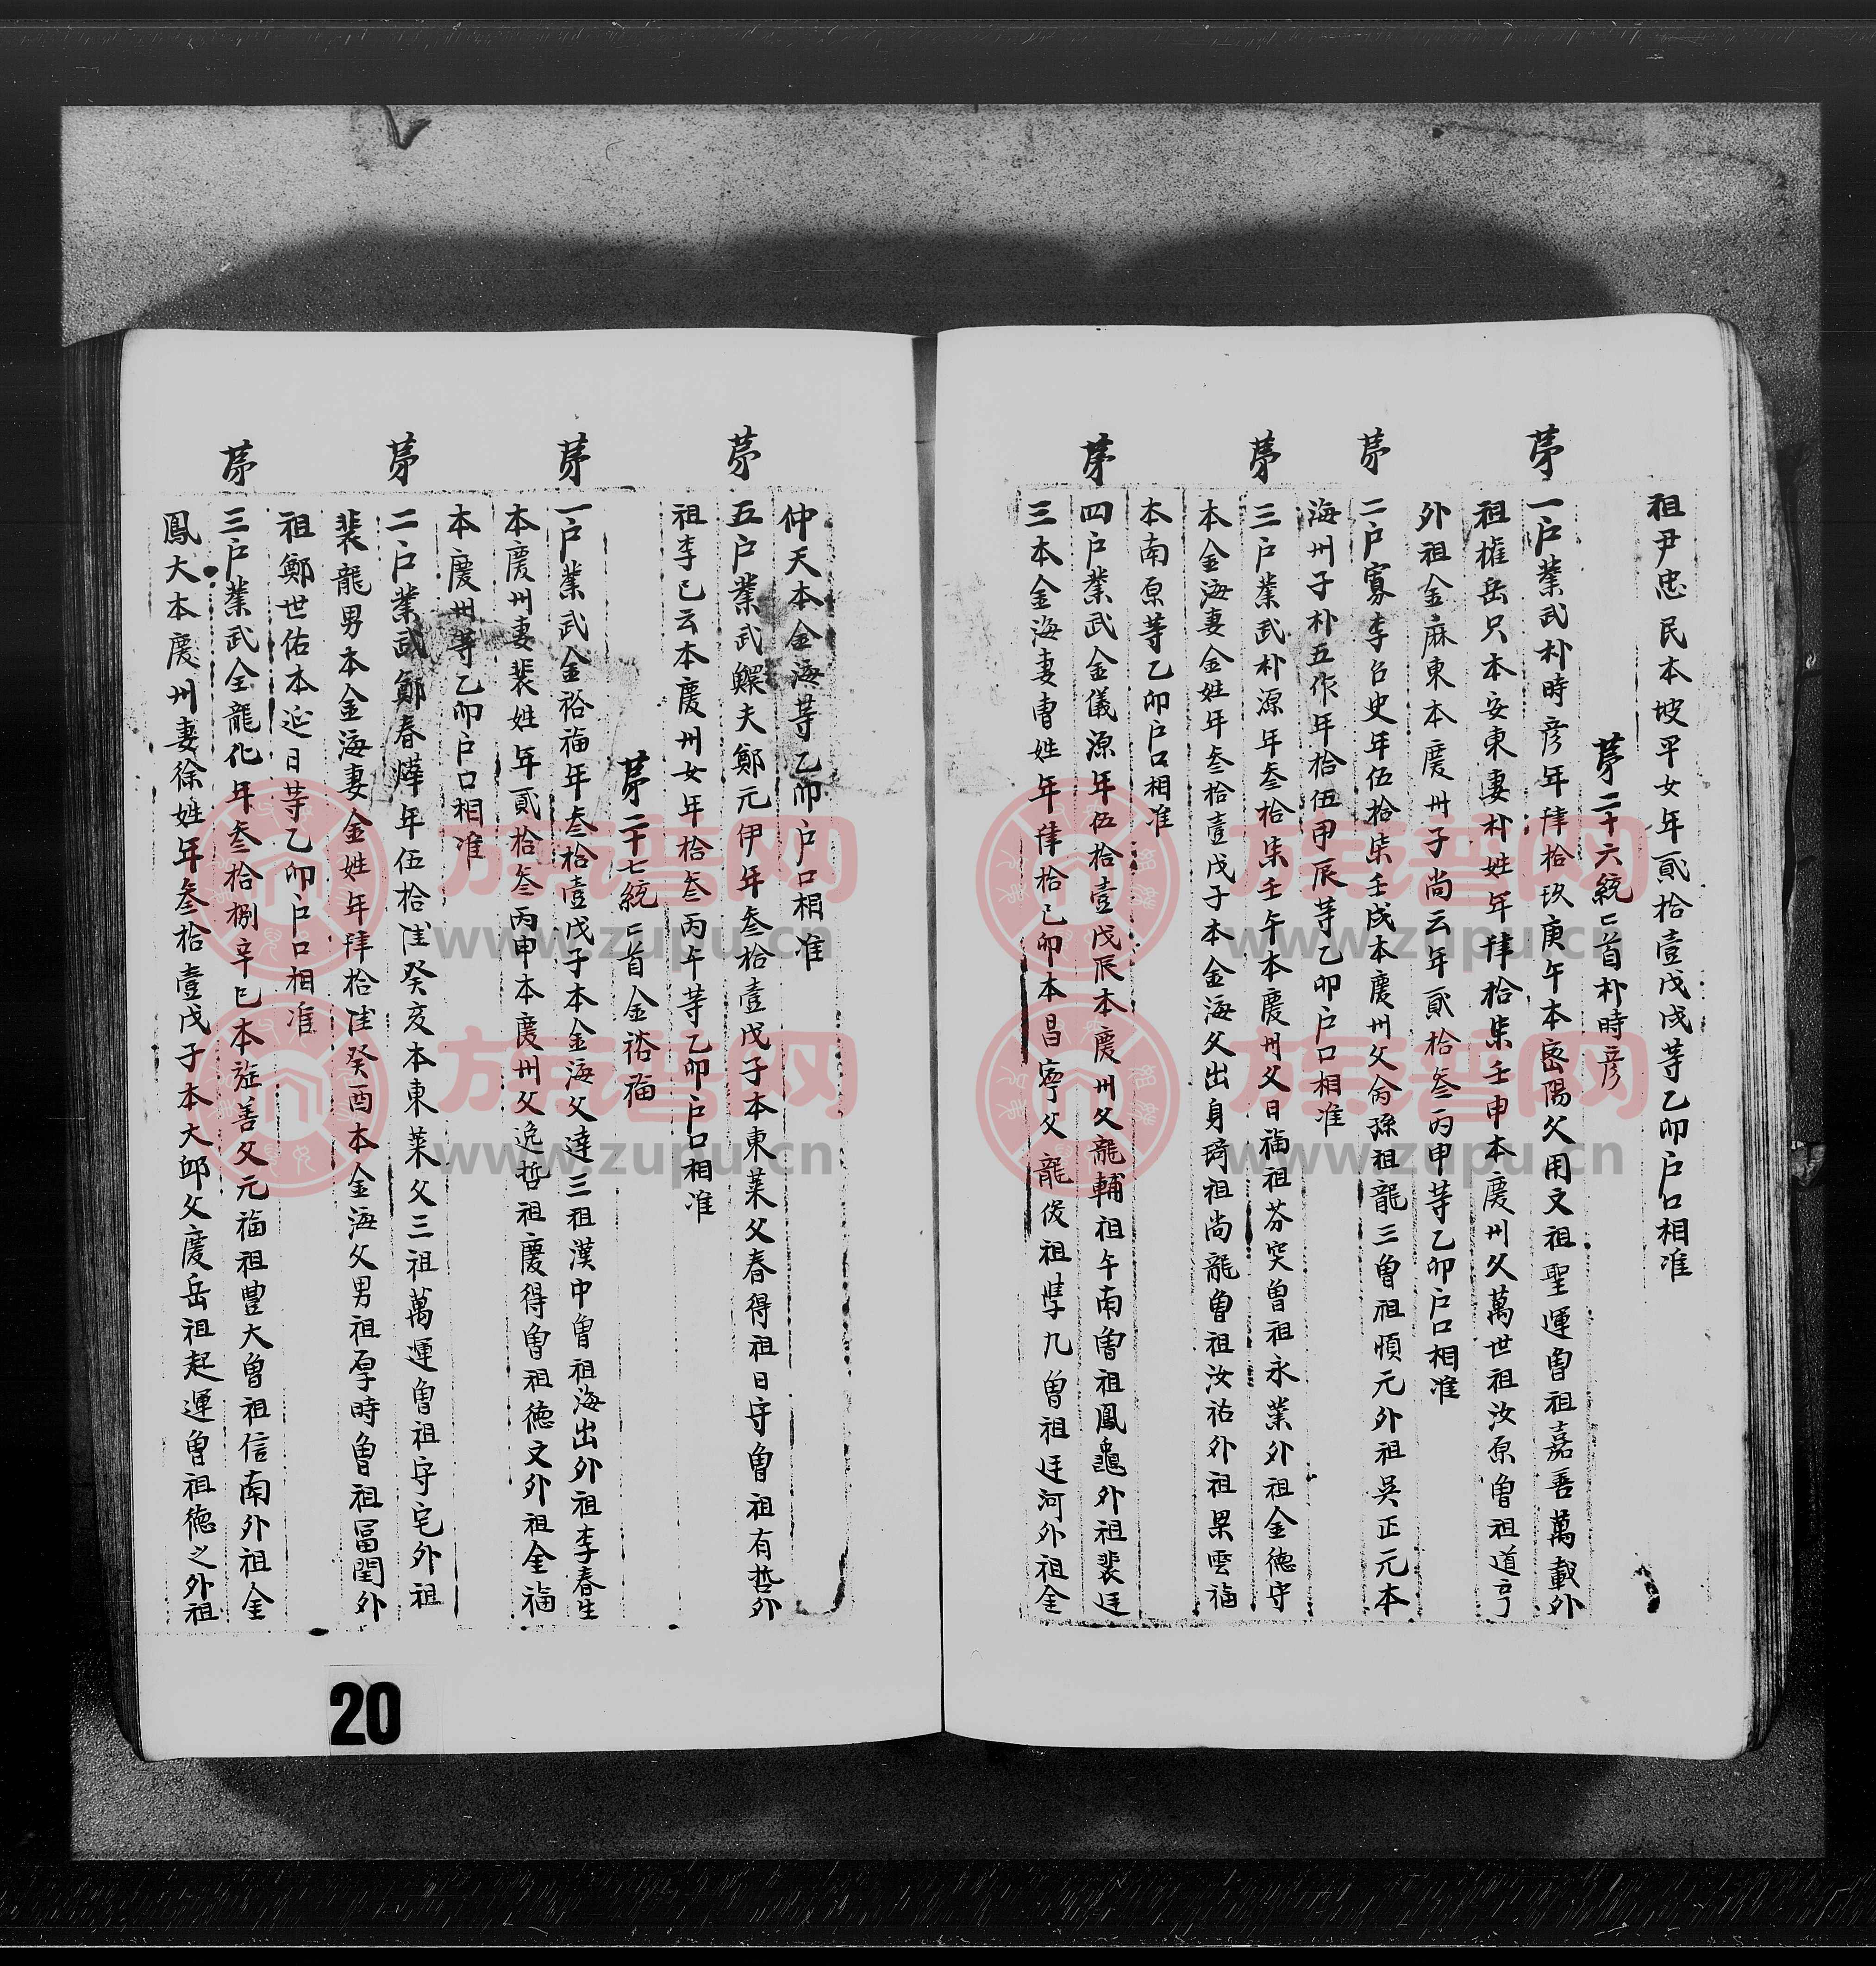 祖尹忠民本坡平女年貳拾壹戊戌等乙卯户口相准
茅二十六統統首朴時彦
茅一户業武朴時彦年肆拾玖庚午本密陽父用文祖聖運曾祖嘉善萬載外
祖權岳只本安東妻朴姓年肆拾柒壬申本慶州父萬世祖汝原曾祖道亨
外祖金麻東本慶州子尚云年貳拾叁丙申等乙卯户口相准
茅二户寡李召史年伍拾柒壬戌本慶州父尚孫祖龍三曾祖順元外祖吳正元本
海州子朴五作年拾伍甲辰等乙卯户口相准
茅三户業武朴源年叁拾柒壬午本慶州父日福祖芬突曾祖永業外祖金德守
本金海妻金姓年叁拾壹戊子本金海父出身琦祖尚龍曾祖汝祐外祖果雲福
本南原等乙卯户口相准
茅四户業武金儀源年伍拾壹戊辰本慶州父龍輔祖午南曾祖鳳龜外祖裴廷
三本金海妻曺姓年肆拾己卯本昌寧父龍俊祖學九曾祖廷河外祖金
仲天本金海等乙卯户口相准
茅五户業武鰥夫鄭元伊年叁拾壹戊子本東萊父春得祖日守曾祖有哲外
祖李已云本慶州女年拾叁丙午等乙卯户口相准
茅二十七統統首金裕福
茅一户業武金裕福年叁拾壹戊子本金海父達三祖漢中曾祖海出外祖李春生
本慶州妻裴姓年貳拾叁丙申本慶州父逸哲祖慶得曾祖德文外祖金福
本慶州等乙卯户口相准
茅二户業武鄭春燁年伍拾陸癸亥本東萊父三祖萬運曾祖守宅外祖
裴龍男本金海妻金姓年肆拾陸癸酉本金海父男祖厚時曾祖冨閏外
祖鄭世佑本延日等乙卯户口相准
茅三户業武全龍化年叁拾捌辛巳本旌善父元福祖豊大曾祖信南外祖金
鳳大本慶州妻徐姓年叁拾壹戊子本大邱父慶岳祖起運曾祖德之外祖
20
族譜网
www.zupu.cn
族譜网
www.zupu.cn
族譜网
www.zupu.cn
族譜网
www.zupu.cn